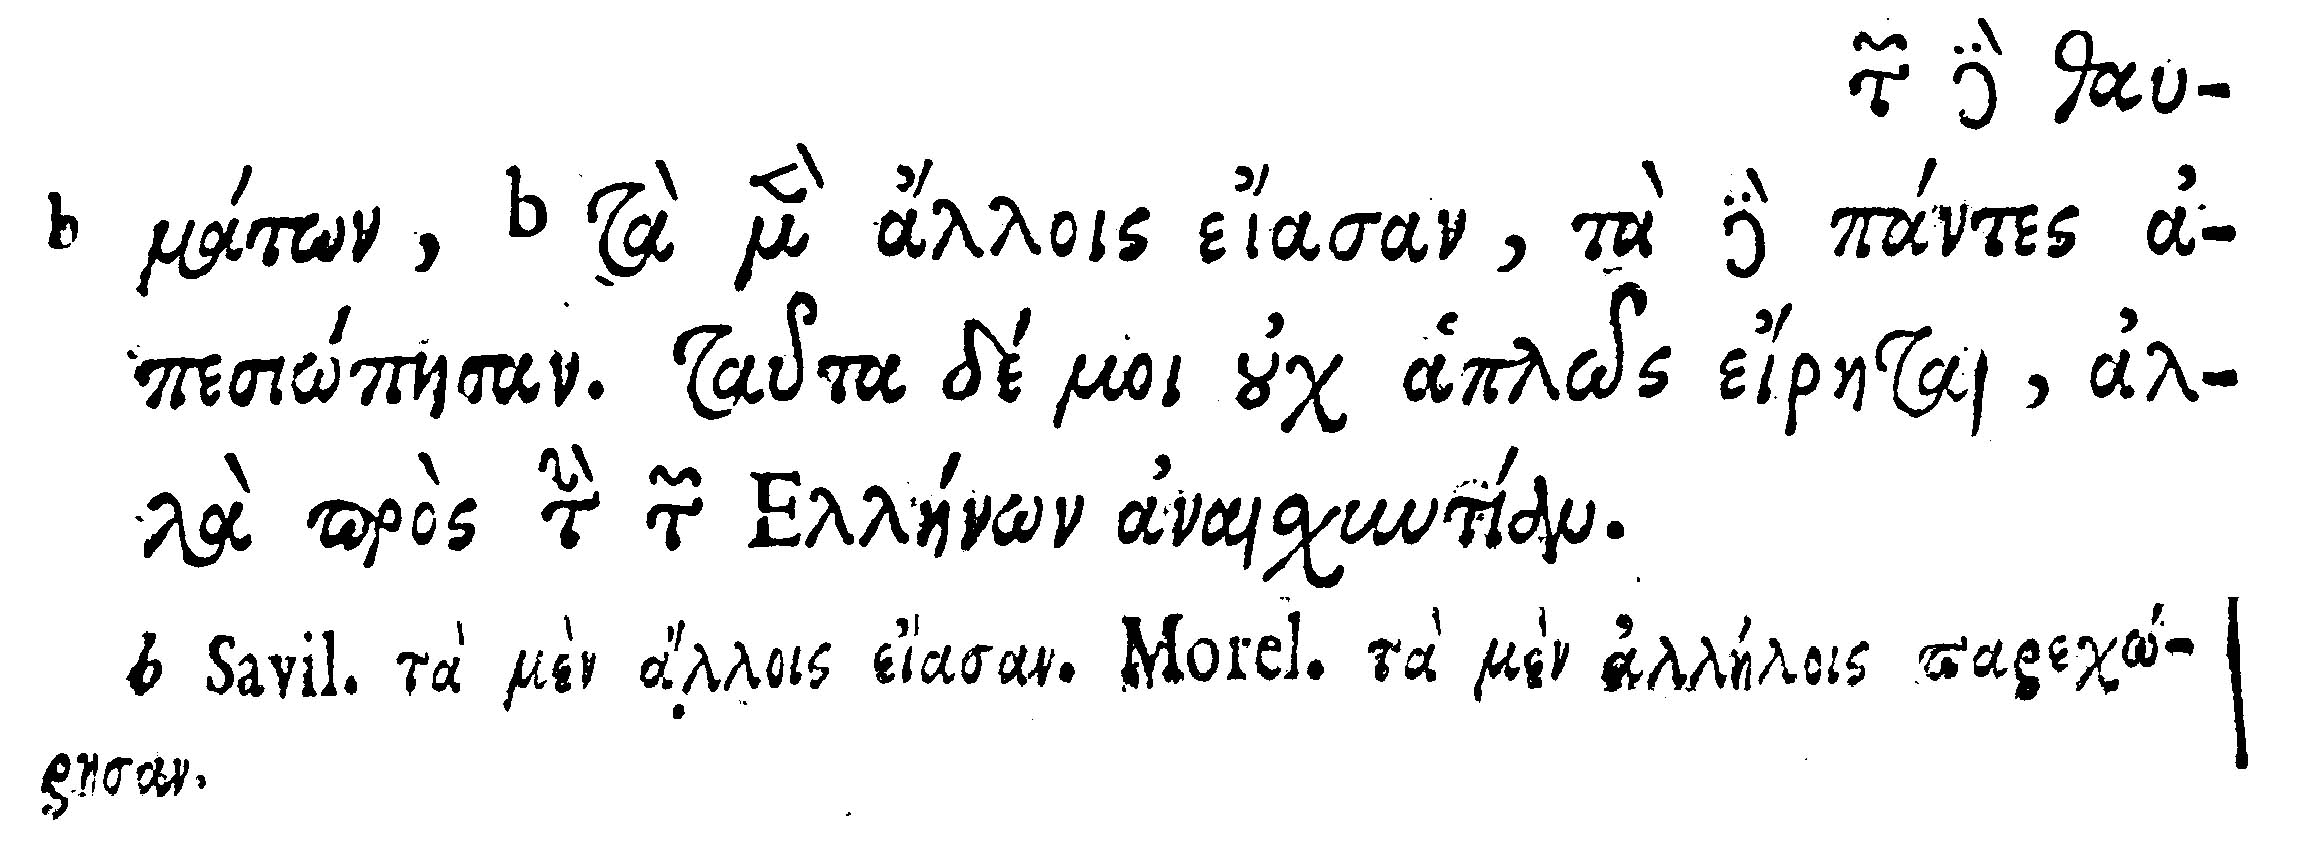 τῶν δὲ θαυ-
b μάτων, b τὰ μὲν ἄλλοις εἴασαν, τὰ δὲ πάντες ἀ-
πεσιώπησαν. ταῦτα δέ μοι οὐχ ἁπλῶς εἴρηται, ἀλ-
λὰ πρὸς τὴν τῶν Ελλήνων ἀναισχυντίαν.
b Savil. τὰ μὲν ἄλλοις εἴασαν. Morel. τὰ μὲν ἀλλήλοις παρεχώ-
ρησαν.